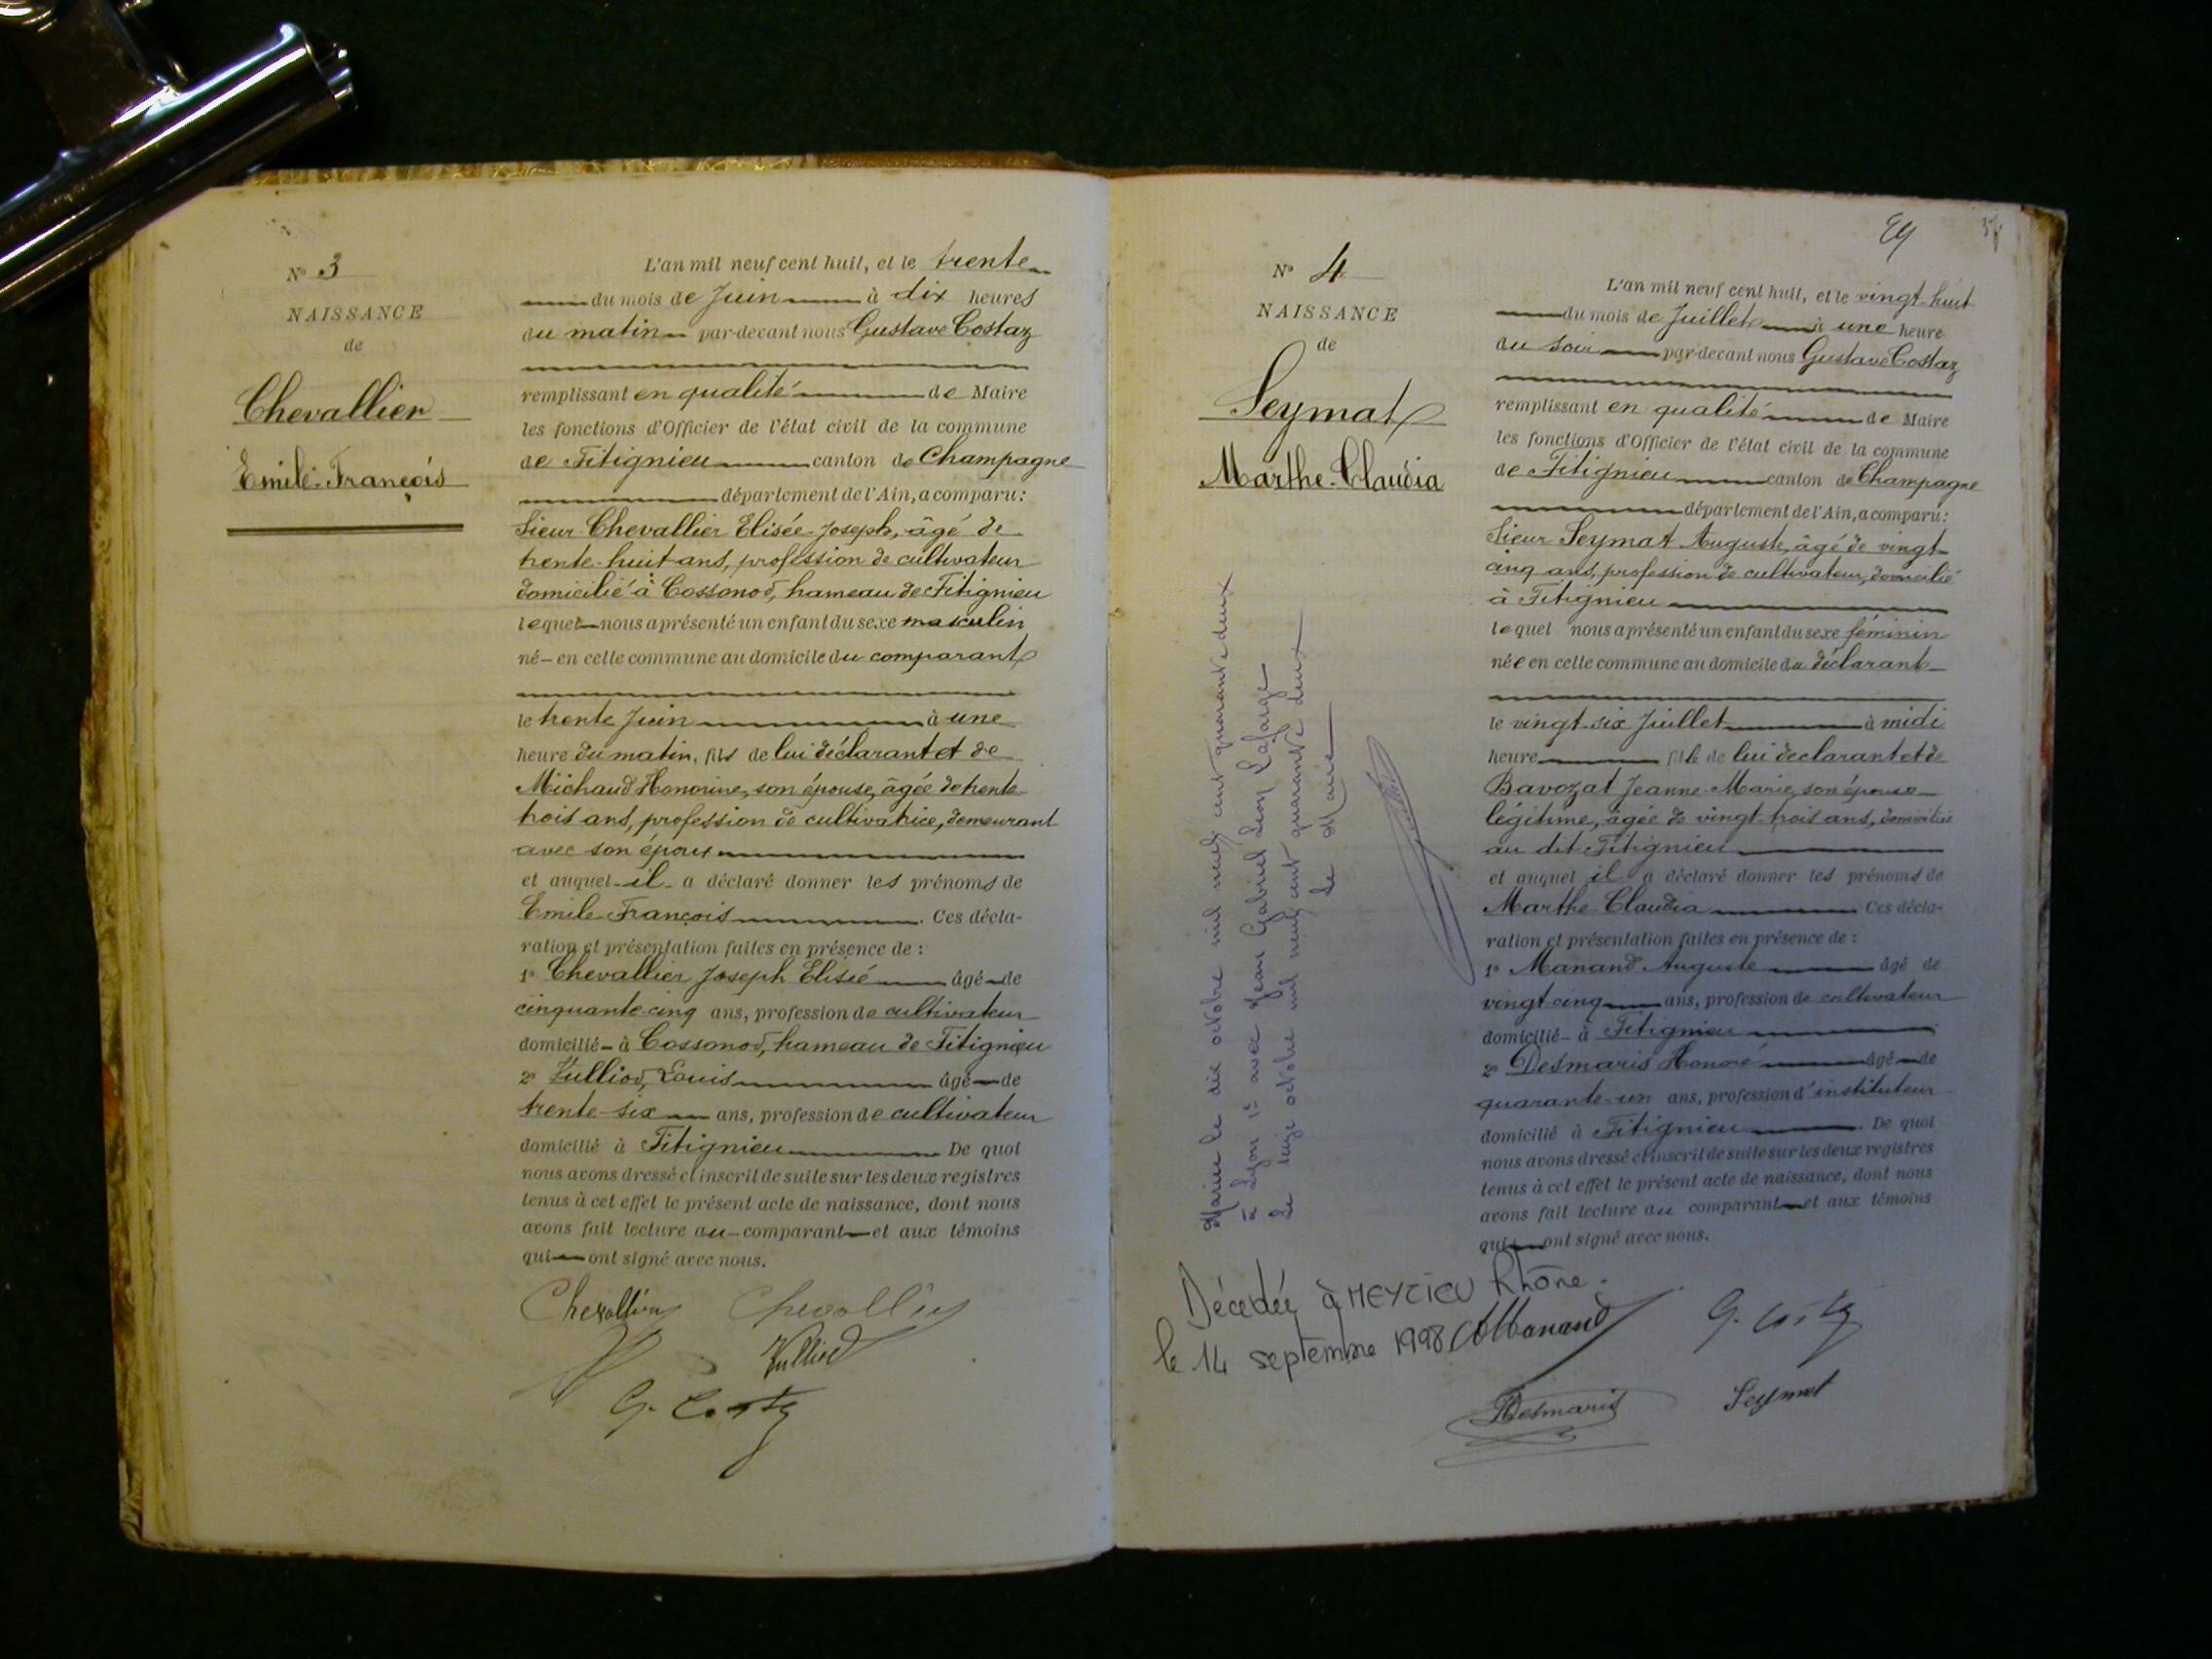 N° 3
NAISSANCE
de
Chevallier
Emile-François
L'an mil neuf cent huit, et le trente
du mois de Juin à dix heures
du matin par-devant nous Gustave Costaz
remplissant en qualité de Maire
les fonctions d'Officier de l'état civil de la commune
de Fitignieu canton de Champagne
département de l'Ain, a comparu:
Sieur Chevallier Elisée Joseph, âgé de
trente-huit ans, profession de cultivateur
domicilié à Cossonod, hameau de Fitignieu
lequel nous a présenté un enfant du sexe masculin
né en cette commune au domicile du comparant
le trente Juin à une
heure du matin, fils de lui déclarant et de
Michaud Honorine, son épouse, âgée de trente
trois ans, profession de cultivatrice, demeurant
avec son époux
et auquel il a déclaré donner les prénoms de
Emile François. Ces décla-
ration et présentation faites en présence de :
1° Chevallier Joseph Elisée âgé de
cinquante-cinq ans, profession de cultivateur
domicilié à Cossonod, hameau de Fitignieu
2° Julliod, Louis âgé de
trente-six ans, profession de cultivateur
domicilié à Fitignieu De quoi
nous avons dressé et inscrit de suite sur les deux registres
tenus à cet effet le présent acte de naissance, dont nous
avons fait lecture au comparant et aux témoins
qui ont signé avec nous.
Chevallier Chevallier
Julliod
G. Costaz
29
N° 4
NAISSANCE
de
Seymat
Marthe-Claudia
Mariée le dix octobre mil neuf cent quarante deux
à Lyon 1e avec Jean Gabriel Léon Lafarge
Le seize octobre mil neuf cent quarante deux
Le Maire
Décédée à MEYZIEU Rhône.
le 14 septembre 1998
L'an mil neuf cent huit, et le vingt-huit
du mois de Juillet à une heure
du soir par-devant nous Gustave Costaz
remplissant en qualité de Maire
les fonctions d'Officier de l'état civil de la commune
de Fitignieu canton de Champagne
département de l'Ain, a comparu:
Sieur Seymat Auguste, âgé de vingt
cinq ans, profession de cultivateur, domicilié
à Fitignieu
lequel nous a présenté un enfant du sexe féminin
née en cette commune au domicile du déclarant
le vingt-six Juillet à midi
heure fille de lui déclarant et de
Bavozat Jeanne-Marie, son épouse
légitime, âgée de vingt trois ans, domiciliée
au dit Fitignieu
et auquel il a déclaré donner les prénoms de
Marthe Claudia Ces décla-
ration et présentation faites en présence de :
1° Manand Auguste âgé de
vingt-cinq ans, profession de cultivateur
domicilié à Fitignieu
2° Desmaris Honoré âgé de
quarante-un ans, profession d'instituteur
domicilié à Fitignieu. De quoi
nous avons dressé et inscrit de suite sur les deux registres
tenus à cet effet le présent acte de naissance, dont nous
avons fait lecture au comparant et aux témoins
qui ont signé avec nous.
AManand G. Costaz
HDesmaris Seymat